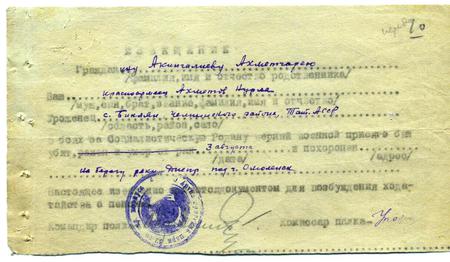 70
ИЗВЕЩЕНИЕ
Гражданину Акингалиеву Ахметгарею
/фамилия,имя и отчество родственника/
Ваш красноармеец Ахметов Нурле
/муж,сын,брат,звание,фамилия,имя и отчество/
Уроженец с. Бикляни Челнинского района, Тат. АССР
/область,район,село/
в боях за Социалистическую Родину верный военной присяге был
убит, 3 августа и похоронен
/дата/ /адрес/
на берегу реки Днепр под г. Смоленск
Настоящее извещение является документом для возбуждения хода-
тайства о пенсии
Командир полка Комиссар полка